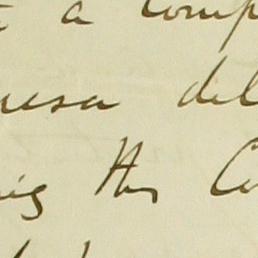 a comp
uesa del
ing this Co